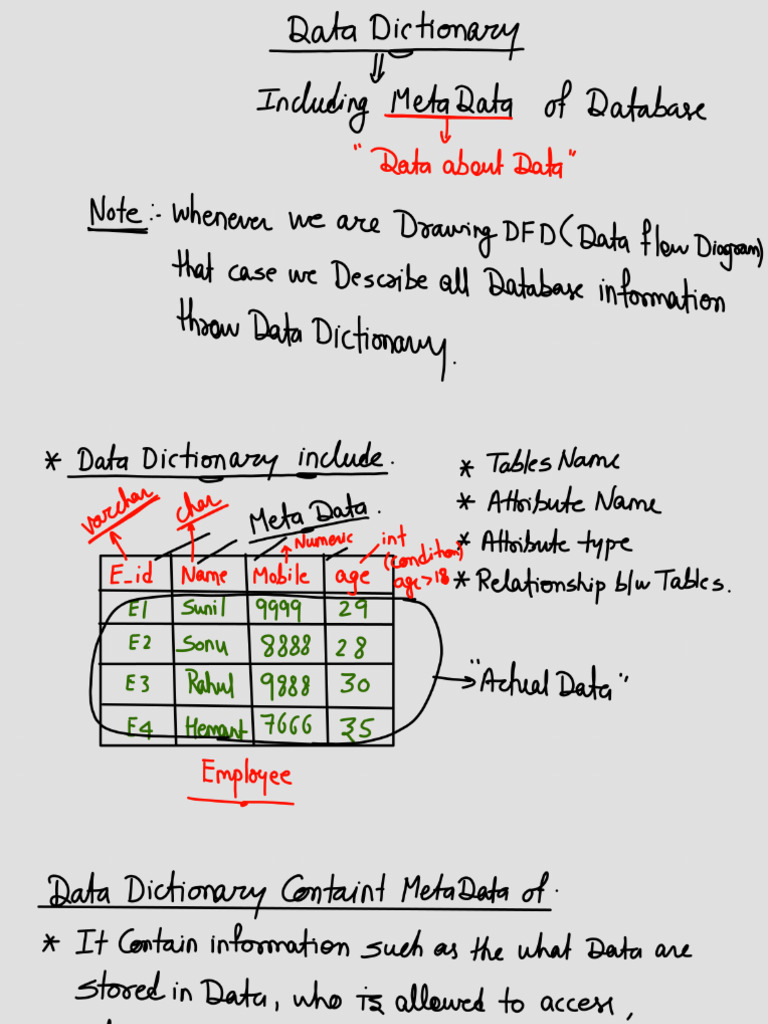 Data Dictionary
Including MetaData of Database
"Data about Data"
Note:- Whenever we are Drawing DFD (Data flow Diagram)
that case we Describe all Database information
throw Data Dictionary.
* Data Dictionary include.
* Tables Name
* Attribute Name
* Attribute type
* Relationship b/w Tables.
varchar char Meta Data.
Numeric int
(condition)
age>18
E_id Name Mobile age
E1 Sunil 9999 29
E2 Sonu 8888 28
E3 Rahul 9888 30
E4 Hemant 7666 35
"Actual Data"
Employee
Data Dictionary Containt MetaData of.
* It Contain information such as the what Data are
stored in Data, who is allowed to access,